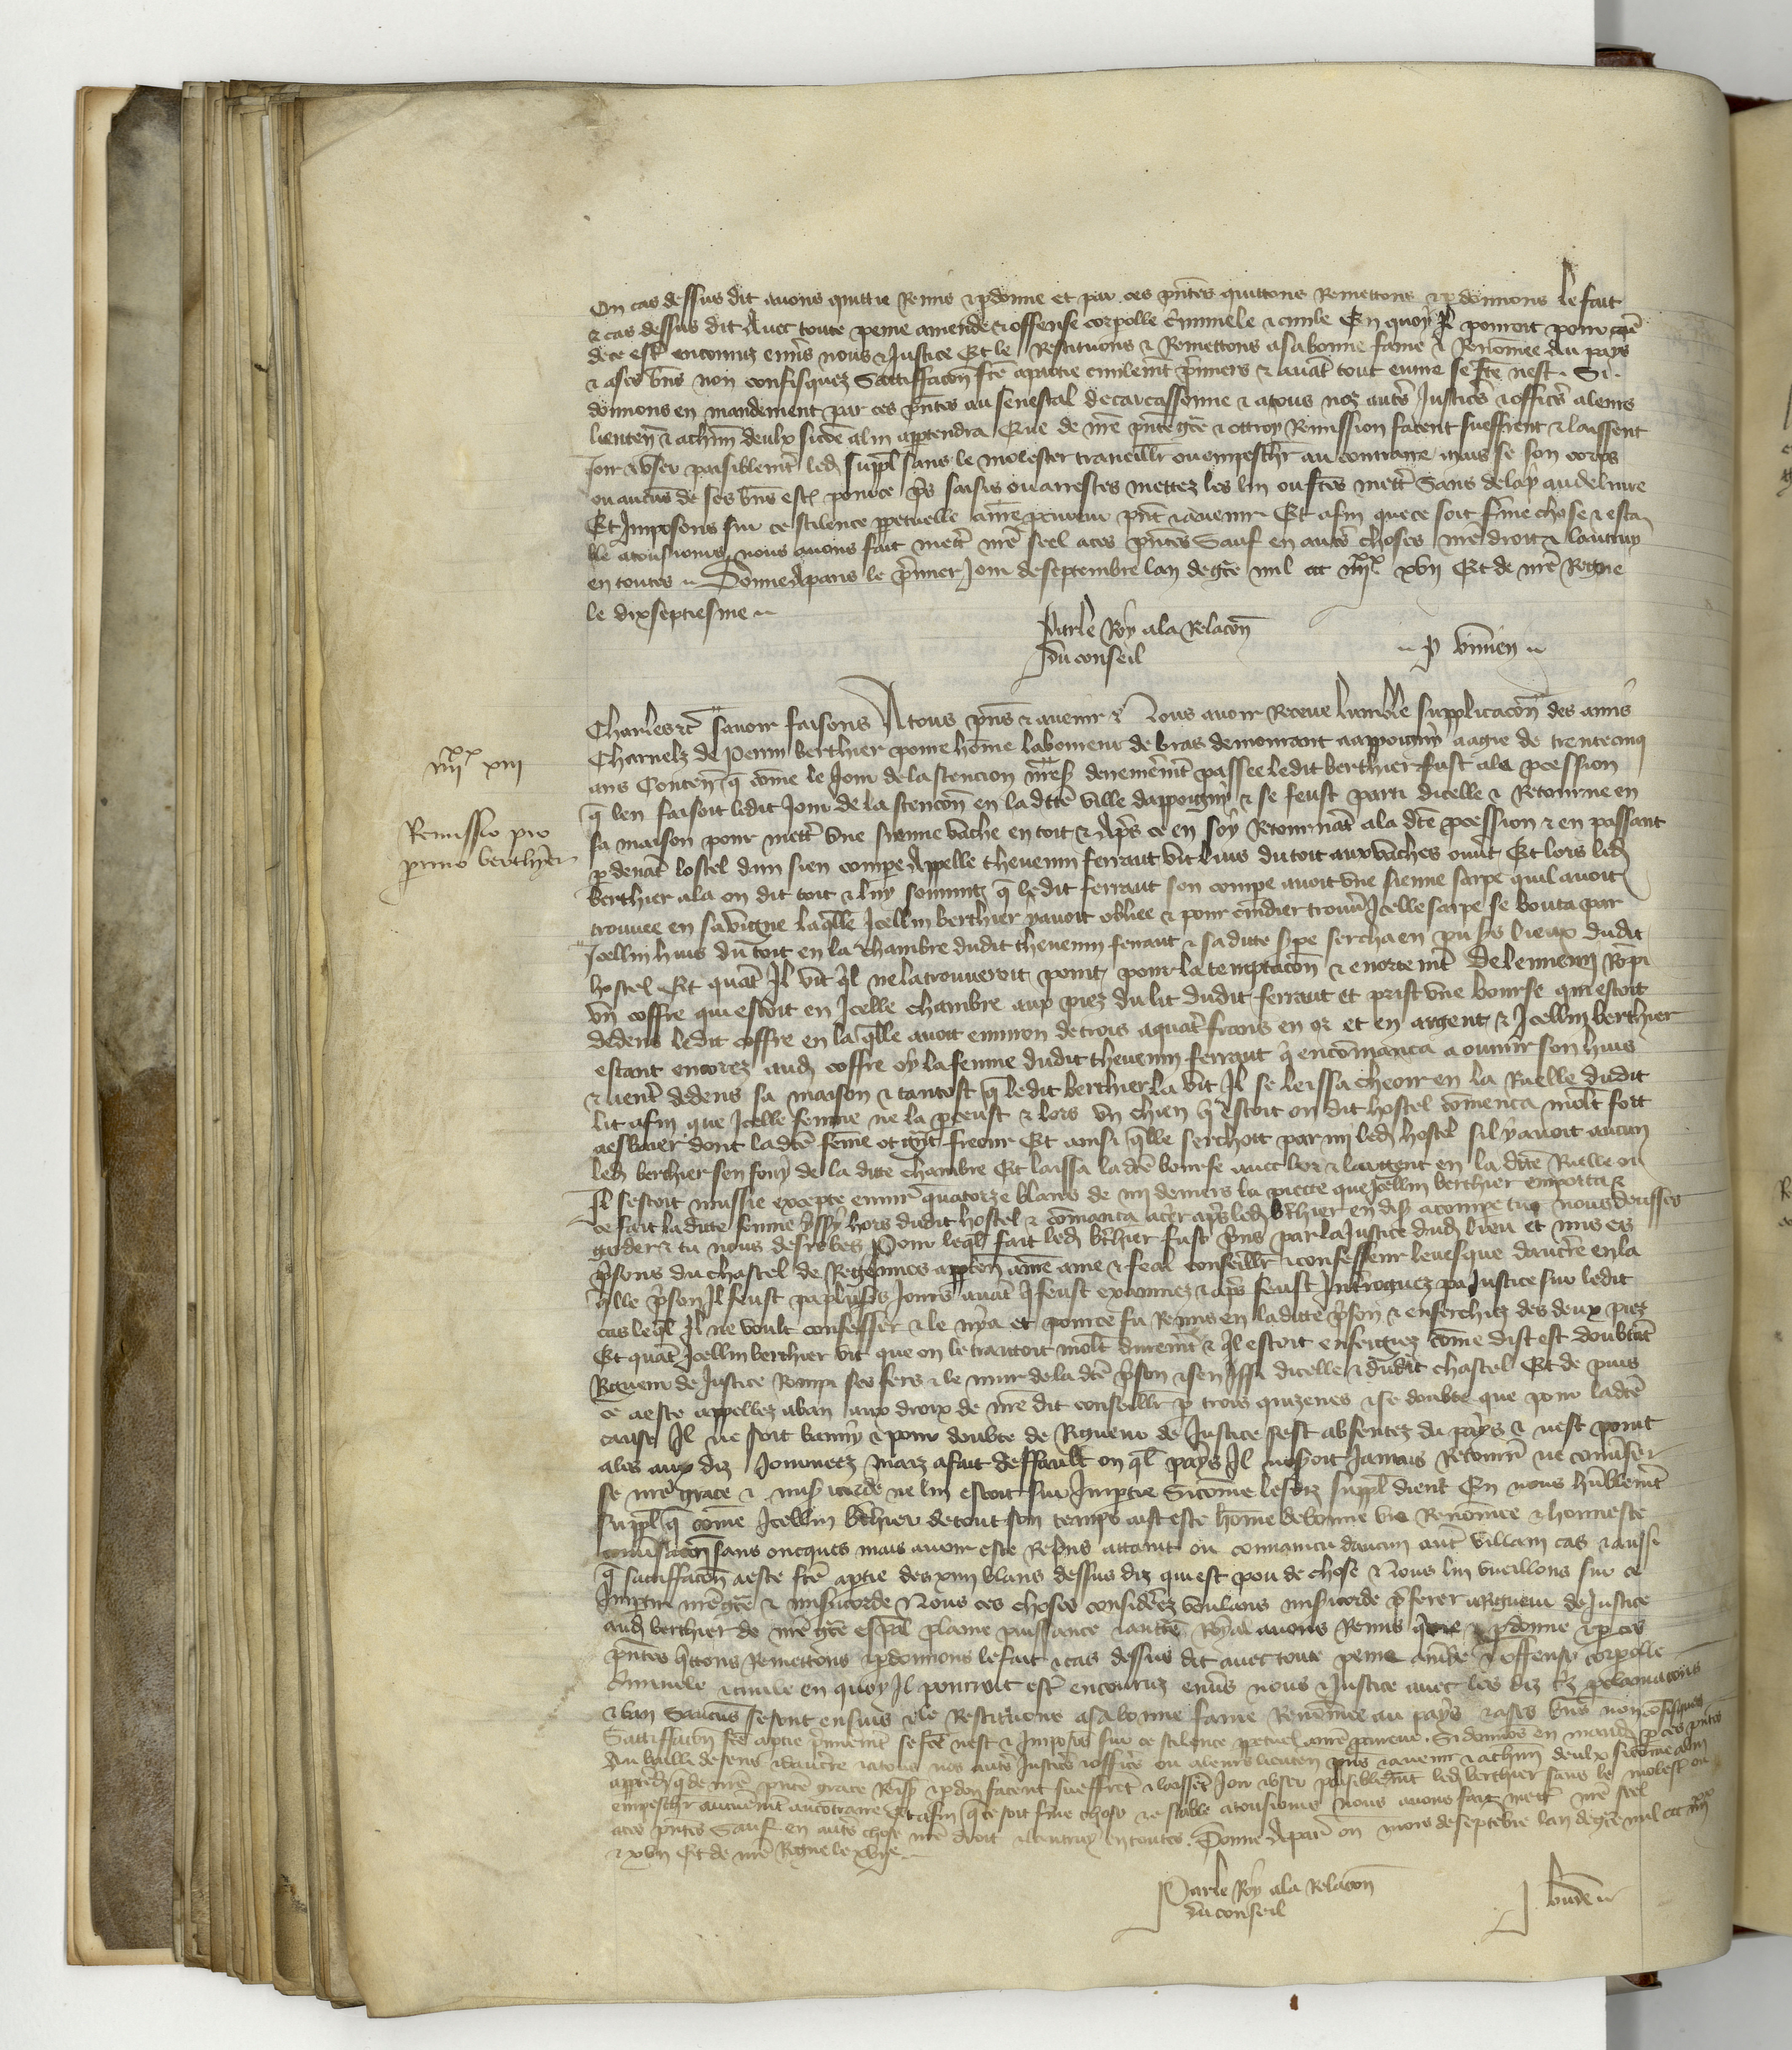 On cas dessus dit avons quittie Remis & pdonne et par ces pntes quittons Remettons & pdonnons le fait
& cas dessus dit Avec toute peine amende & offense corpolle Criminele & civile En quoy Il pouroit pour cause
de ce estre encouruz envers nous & Justice Et le Restituons & Remettons a sa bonne fame & Renomee Au pays
& a ses biens non confisquez Satisffacon fte a partie civilemt premiers & avat tout euvre se fte nest. Si
donnons en mandement par ces pntes au senescal de carcassonne & a tous noz autres Justiciers & officiers a leurs
lieuten & a chun deulx sicoe a lui apptendra Que de nre pnte gce & ottroy Remission facent sueffrent & laissent
Joir & user paisiblemt led suppl sans le molester travaillr ou empeschr au contraire mais se son corps
ou aucus de ses biens est pour ce pris saisis ou arrestes mettez les lui ou ftes mettre Sans delay au delivre
Et Imposons sur ce silence ppetuelle a nre procureur pnt & avenir Et afin que ce soit ferme chose & esta
ble a tousjours nous avons fait mettr nre seel a ces pntes Sauf en autres choses nre droit & lautruy
en toutes Donne A paris le premier Jour de septembre lan de gce mil ccc iiii xx xvii Et de nre Regne
le dixseptiesme
Par le Roy a la Relacon
du conseil
p vivien
Charles &c savoir faisons A tous pns & avenir & Nous avoir Receue lumble supplicacon des amis
Charnelz de Perrin berthier povre home laboureur de bras demourant a appoigny aagie de trentecinq
ans Conten q come le Jour de lascencion nres derremeremt passee ledit berthier fust a la pcession
q len faisoit ledit Jour de lascencon en la ditte ville dappoigny & se feust parti dicelle & Retourne en
sa maison pour mettr une sienne vache en toit & Apres ce en soy Retournat a la dte pcession & en passant
p devat lostel dun sien compe Appelle thevenin ferraut vit luis du toit aux vaches ouvt Et lors led
berthier ala on dit toit & luy souvint q ledit ferraut son compe avoit une sienne sarpe quil avoit
trouvee en sa vigne laqlle Icellui berthier y avoit obliee & pour cuidier trouver Icelle sarpe se bouta par
Icellui huis du toit en la chambre dudit thevenin ferraut & sa ditte spe sercha en plusrs lieux dudit
hostel Et quat Il vit ql ne la trouveroit point pour la temptacon & enortemt De lennemi Ropi
un coffre qui estoit en Icelle chambre aux piez du lit dudit ferraut et prist une bourse qui estoit
dedens ledit coffre en la qlle avoit environ de trois a quatr frans en or et en argent & Icellui berthier
estant encorez aud coffre oy la femme dudit thevenin ferraut q encomanca a ouvrir son huis
& venir dedens sa maison & tantost q ledit berthier la vit Il se leissa cheoir en la Ruelle dudit
lit afin que Icelle femme ne la pceust & lors un chien q estoit on dit hostel comenca molt fort
a esbaier dont la dte feme ot gnt freour Et ainsi qlle serchoit par mi led hostel sil y avoit aucun
led berthier sen fouy de la ditte chambre Et laissa la dte bourse avec lor & largent en la dite Ruelle ou
Il sestoit mussie excepte envir quatorze blans de iiii deniers la piece que Icellui berthier emporta &
ce fait la ditte femme yssy hors dudit hostel & comanca a crier apres led bthier en disant a compe tu nous deusses
garder & tu nous desrobes Pour leql fait led bthier fust prins par la Justice dud lieu et mis es
prisons du chastel de Regennes apparten a nre ame & feal conseillr & confesseur levesque daucerre en la
qlle prison Il feust p a plusrs Jours avat q feust examinez & apres feust Interroguez pa Justice sur ledit
cas leql Il ne voult confesser & le nya et pour ce fu Remis en la ditte prison & enferrez des deux piez
Et quat Icellui berthier vit que on le traitoit molt duremt & ql estoit enferrez come dist est doubtat
Rigueur de Justice Rompi ses fers & le mur de la dte prison & sen Issi dicelle & dudit chastel Et de puis
ce a este appellez a ban aux droix de nre dit conseillr p trois quizenes & se doubte que pour la dte
cause Il ne soit banny & pour doubte de Rigueur de Justice sest absentez du pays & nest point
ales aux diz Journeez maiz a fait deffault on ql pays Il noseroit Jamais Retourner ne converser
se nre grace & misicorde ne lui estoit sur Impartie Sicome lesdiz suppl dient En nous humblemt
suppl q come Icellui bthier de tout son temps ait este home de bonne vie Renomee & honneste
conversacon sans oncques mais avoir este Repris attaint ou convaincu daucun autre villain cas & aussi
q satisffacon a este fte a ptie des xiiii blans dessus diz qui est pou de chose Nous lui vueillons sur ce
Impartir nre gce & misicorde Nous ces choses considerez voulans misicorde preferer a Rigueur de Justice
aud berthier de nre gce espal plaine puissance & auttte Royal avons Remis quitte & pdonne & p ces
pntes qttons Remettons & pdonnons le fait & cas dessus dit avec toute peine amde & offense corpolle
Criminele & civile en quoy Il pourroit estre encouruz envers nous & Justice avec les diz
& ban Saucus se sont ensuis & le Restituons a sa bonne fame Renomee au pays & a ses biens non cofisques
Satisffacon fte a ptie premieremt se fte nest & Imposons sur ce silence ppetuel a nre procureur. Si donnons en mand p ces pntes
Au bailli de sens & daucerre & a tous nos autres Justiciers & officiers ou a leurs lieuten pns & avenir & a chun deulx sicome a lui
apptendr q de nre pnte grace Remiss & pdon facent sueffret & laissent Joir & user paisiblemt led berthier sans le molestr ou
empeschr aucunemt au cotraire Et afin q ce soit ferme chose & estable a tousjours Nous avons fait mettr nre seel
a ces pntes Sauf en autres choses nre droit & lautruy en toutes. Donne A paris on mois de septebre lan de gce mil ccc iiii xx
& xvii Et de nre Regne le xviie
Par le Roy a la Relacon
du conseil
J. bude
iiii xx xiii
Remissio pro
perrino berthier